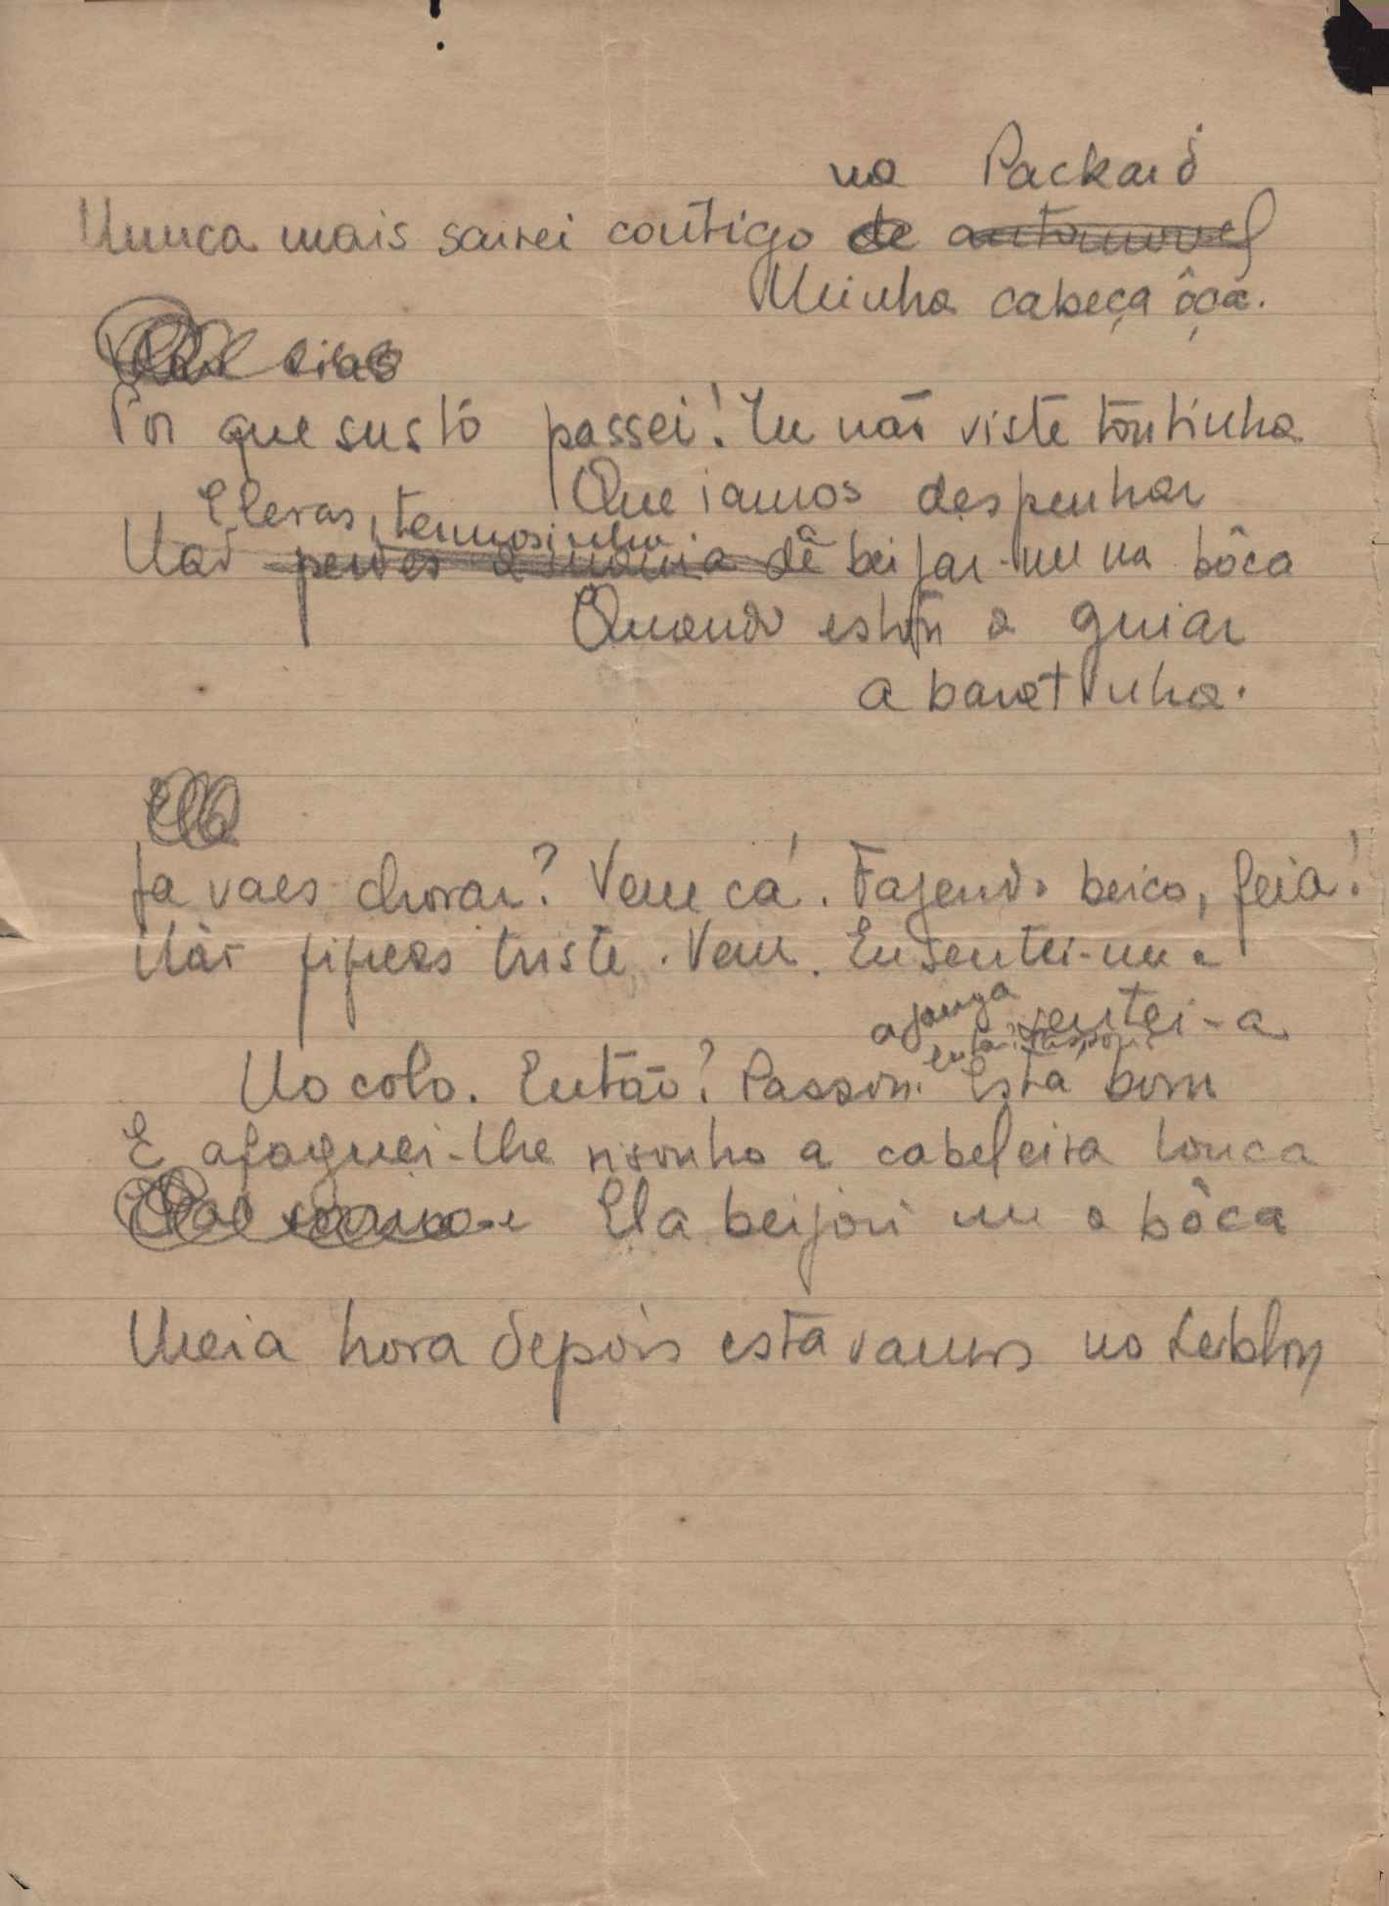 no Packard
Nunca mais sairei contigo de automovel
Minha cabeça ôca.
Por que susto passei! Tu não viste tontinha
Que iamos despenhar
teimosinha
Não perdes a mania de beijar-me na bôca
Quando estou a guiar
a baratinha.
Ella
Ja vaes chorar? Vem cá. Fazendo beico, feia!
Não fiques triste. Vem. Eu sentei-me e
sentei-a
No colo. Então? Passou? Está bom
E afaguei-lhe risonho a cabeleira louca
Ela beijou me a bôca
Meia hora depois estavamos no Leblon